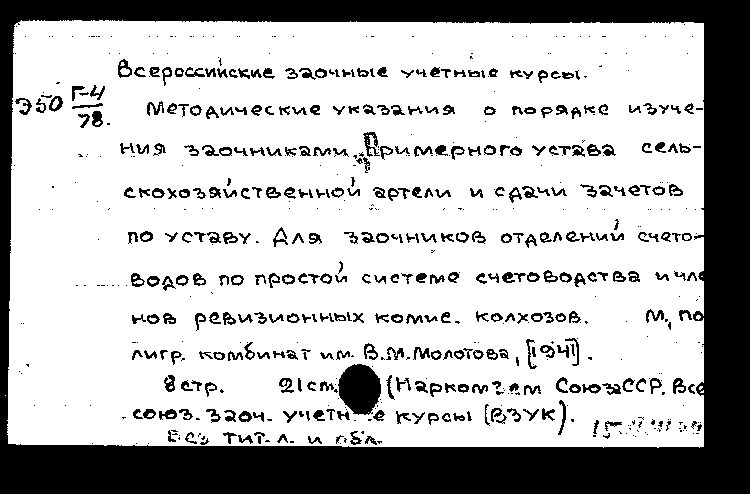 Всероссийские заочные учетные курсы.
Э50 Г-4/78. Методические указания о порядке изуче-
ния заочниками Примерного устава сель-
скохозяйственной артели и сдачи зачетов
по уставу. Для заочников отделений счето-
водов по простой системе счетоводства и чле
нов ревизионных комис. колхозов. М, по
лигр. комбинат им. В.М.Молотова, [1941].
8 стр. 21 см. (Наркомзем Союза ССР. Все
союз. заоч. учетн е курсы (ВЗУК).
Без тит. л. и обл.